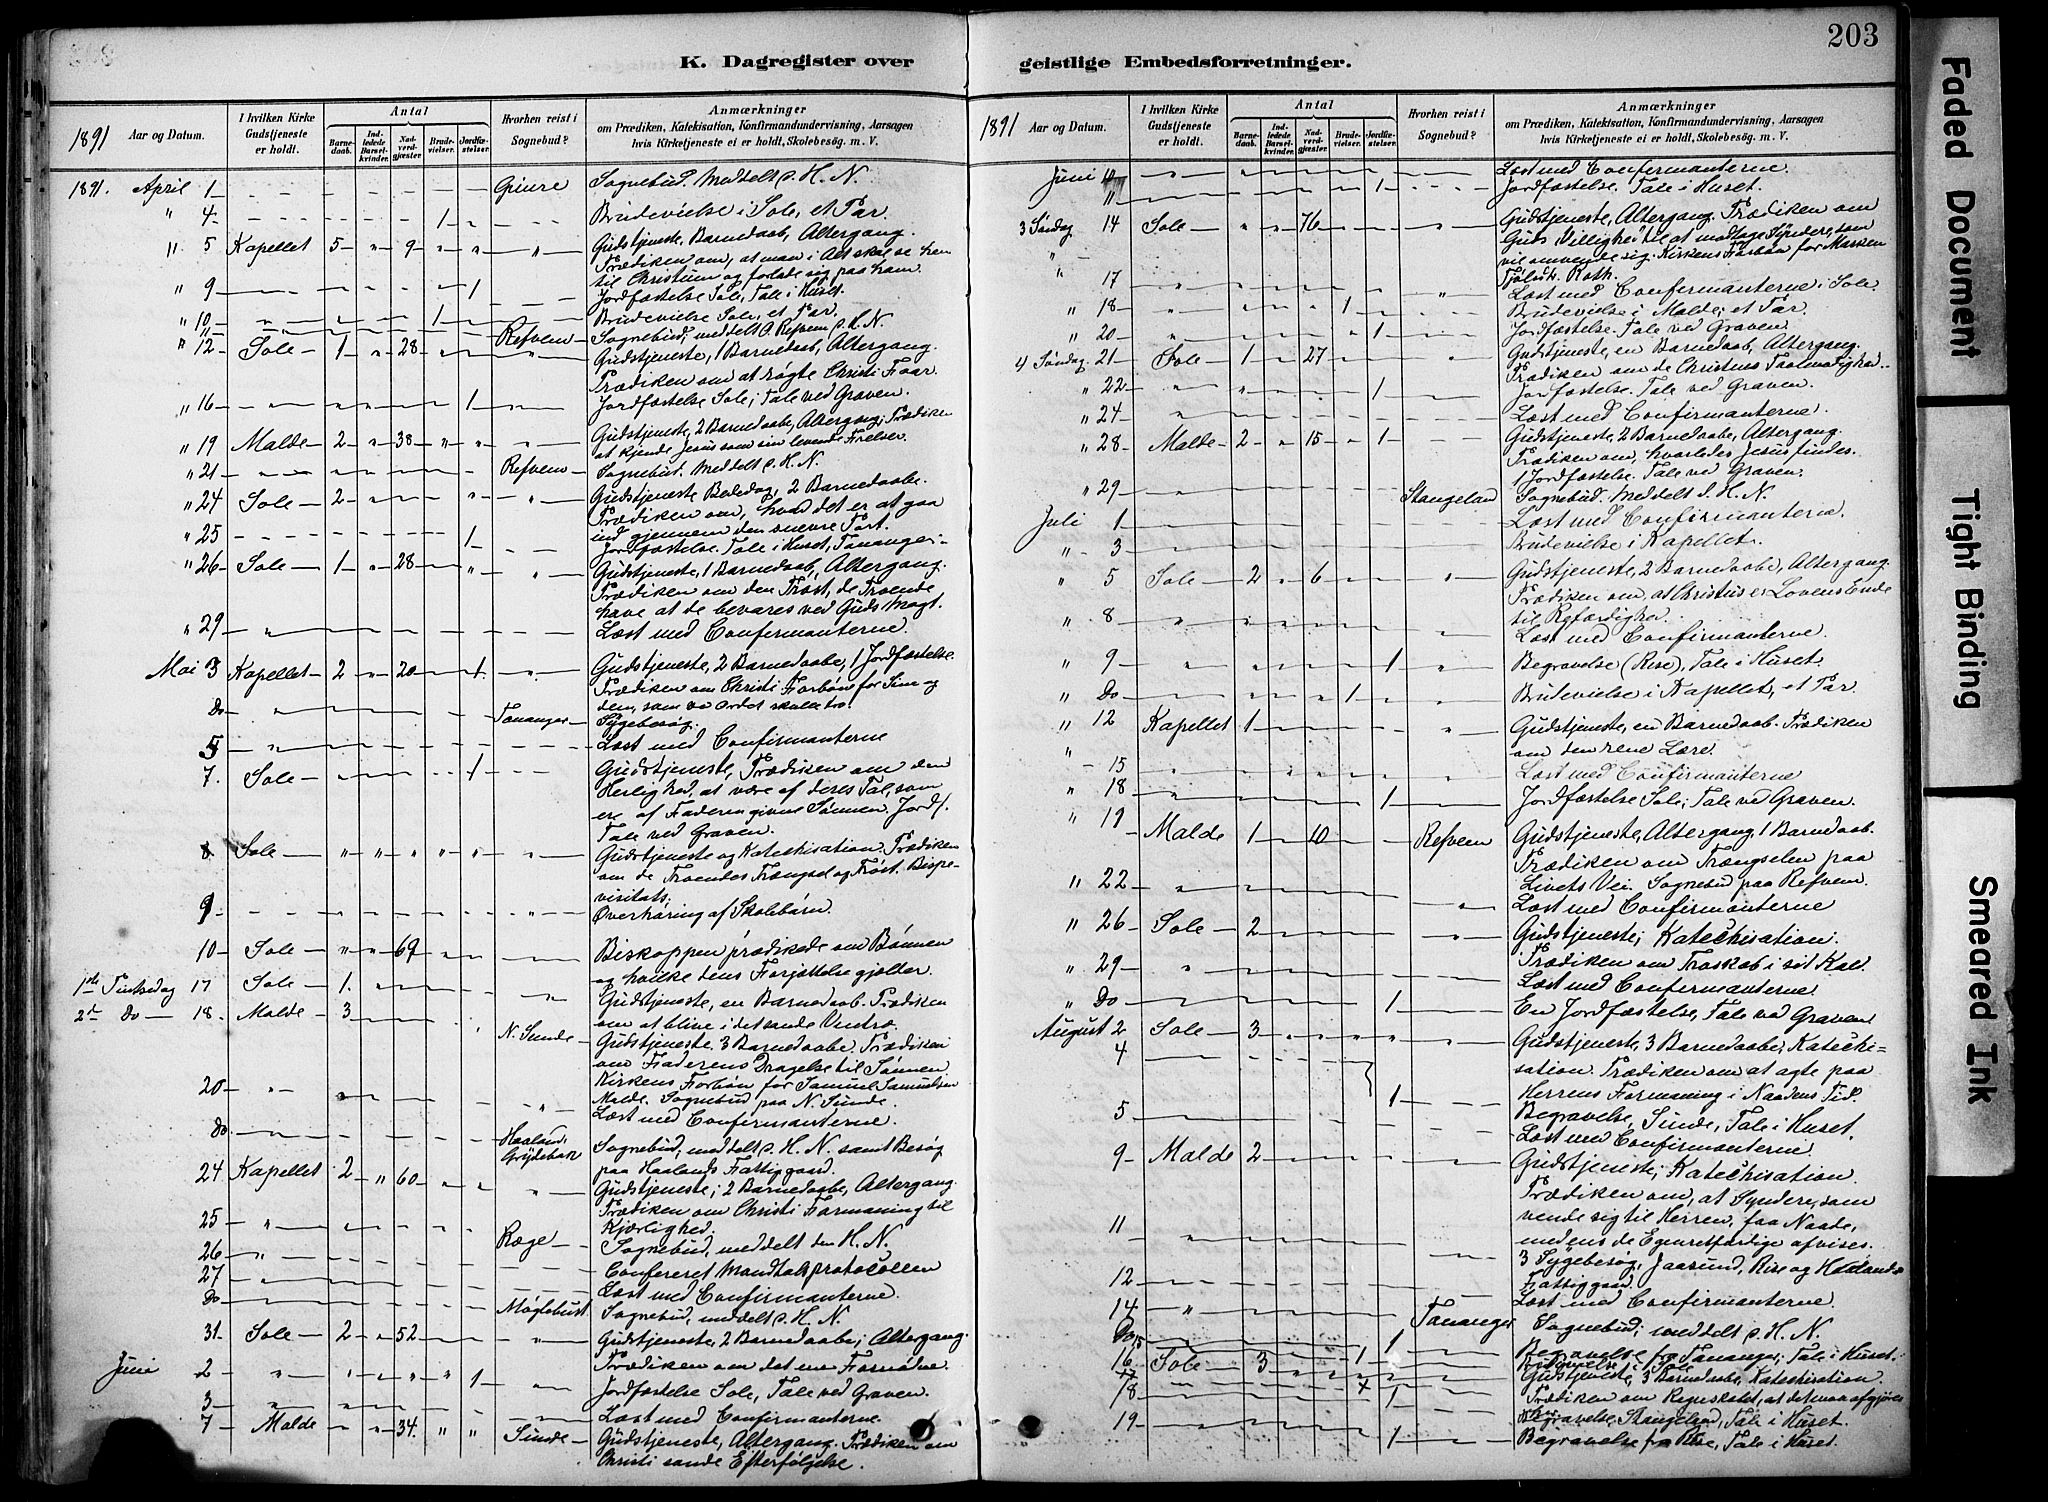 K. Dagregister over
1891
Aar og Datum.
I hvilken Kirke Gudstjeneste er holdt.
Antal
Barne-daab.
Ind-ledede Barsel-kvinder.
Nad-verd-gjæster.
Brude-vielser.
Jordfæ-stelser.
Hvorhen reist i Sognebud?
Anmærkninger
om Prædiken, Katekisation, Konfirmandundervisning, Aarsagen
hvis Kirketjeneste ei er holdt, Skolebesøg. m. V.
1891. April 1 Giure Sognebud. Meddelt d. H. N.
" 4 1 Brudevielse i Sole, et Par.
" 5 Kapellet 5 " 9 " " " Gudstjeneste, Barnedaab, Altergang.
Prædiken om, at man i Alt skal se hen
til Christum og forlade sig paa ham.
" 9 1 Jordfæstelse Sole, Tale i Huset.
" 10 1 Brudevielse Sole, et Par.
" " Refvem Sognebud, meddelt d. H. N.
" 12 Sole 1 " 28 Gudstjeneste, 1 Barnedaab, Altergang.
Prædiken om at røgte Christi Faar.
" 16 1 Jordfæstelse Sole; Tale ved Graven.
" 19 Malde 2 " 38 " " " Gudstjeneste, 2 Barnedaabe, Altergang; Prædiken
at kjende Jesus som sin levende Frelser.
" 21 Refvem Sognebud. Meddelt d. H. N.
" 24 Sole 2 Gudstjeneste Bededag, 2 Barnedaabe.
Prædiken om, hvad det er at gaa
ind gjennem den snevre Port.
" 25 1 Jordfæstelse. Tale i Huset, Tananger.
" 26 Sole 1 " 28 Gudstjeneste, 1 Barnedaab, Altergang.
Prædiken om den Trøst, de Troende
have at de bevares ved Guds Magt.
" 29 " Læst med Confirmanterne.
Mai 3 Kapellet 2 " 20 1 Gudstjeneste, 2 Barnedaabe, 1 Jordfæstelse.
Prædiken om Christi Forbøn for Sine og
dem, som ved Ordet skulle tro.
Do " Tananger Sygebesøg.
5 " Læst med Confirmanterne
7. Sole 1 Gudstjeneste, Prædiken om den
Herlighed, at være af deres Tal, som
ere af Faderen givne Sønnen. Jordf.
Tale ved Graven.
8 Sole " " " " " Gudstjeneste og Katechisation. Prædiken
om de Troendes Trængsel og Trøst. Bispe-
visitats;
9 Overhøring af Skolebørn.
10 Sole " " 69 Biskoppen prædikede om Bønnen
og hvilke dens Forjættelse gjælder.
1ste Pintsedag 17 Sole 1. Gudstjeneste, en Barnedaab. Prædiken
om at blive i det sande Vintræ.
2d Do 18. Malde 3 N. Sunde Gudstjeneste. 3 Barnedaabe. Prædiken
om Faderens Dragelse til Sønnen
Kirkens Forbøn for Samuel Samuelsen
Malde. Sognebud paa N. Sunde.
20 " Læst med Confirmanterne.
Do " Haaland, Grydebak Sognebud, meddelt d. H. N. samt Besøg
paa Haalands Fattiggaard.
24 Kapellet 2 " 60 Gudstjeneste; 2 Barnedaabe, Altergang.
Prædiken om Christi Formaning til
Kjærlighed.
25 " Ræge Sognebud, meddelt den H. N.
26 " Confereret Mandtalsprotocollen
27 Læst med Confirmanterne.
Do Møglebust Sognebud, meddelt d. H. N.
31. Sole 2 " 52 Gudstjeneste, 2 Barnedaabe; Altergang.
Prædiken om det ene Fornødne.
Juni 2 " 1 Jordfæstelse Sole, Tale ved Graven.
3 " Læst med Confirmanterne.
7 Malde 34. " " Sunde Gudstjeneste, Altergang. Prædiken om
Christi sande Efterfølgelse.
203
geistlige Embedsforretninger.
1891
Aar og Datum.
I hvilken Kirke Gudstjeneste er holdt.
Antal
Barne-daab.
Ind-ledede Barsel-kvinder.
Nad-verd-gjæster.
Brude-vielser.
Jordfæ-stelser.
Hvorhen reist i Sognebud?
Anmærkninger
om Prædiken, Katekisation, Konfirmandundervisning, Aarsagen
hvis Kirketjeneste ei er holdt, Skolebesøg. m. V.
Juni 10 Læst med Confirmanterne.
11 1 Jordfæstelse. Tale i Huset.
3 Søndag 14 Sole " " 76 Gudstjeneste, Altergang. Prædiken om
Guds Villighed til at modtage Syndere, som
vil omvende sig. Kirkens Forbøn for
Roth.
17 Læst med Confirmanterne i Sole.
" 18 1 Brudevielse i Malde; et Par.
" 20 1 Jordfæstelse. Tale ved Graven.
4 Søndag 21 Sole 1 " 27 Gudstjeneste, en Barnedaab, Altergang.
Prædiken om de Christnes Taalmodighed.
" 22 1 Jordfæstelse. Tale ved Graven.
" 24 Læst med Confirmanterne.
" 28 Malde 2 " 15 1 Gudstjeneste, 2 Barnedaabe, Altergang.
Prædiken om, hvorledes Jesus findes.
1 Jordfæstelse. Tale ved Graven.
" 29 Stangelan Sognebud. Meddelt d. H. N.
Juli 1 Læst med Confirmanterne.
" 3 Brudevielse i Kapellet.
" 5 Sole 2 " 6 Gudstjeneste, 2 Barnedaabe, Altergang.
Prædiken om, at Christus er Lovens Ende
til Rtfærdighed.
" 8 Læst med Confirmanterne.
" 9 1 Begravelse (Rise), Tale i Huset.
" Do 1 Brudevielse i Kapellet, et Par.
" 12 Kapellet 1 Gudstjeneste, en Barnedaab. Prædiken
om den rene Lære.
" 15 Læst med Confirmanterne
" 18 1 Jordfæstelse Sole; Tale ved Graven.
" 19 Malde 1 10 Refvem Gudstjeneste, Altergang, 1 Barnedaab.
Prædiken om Trængselen paa
Livets Vei. Sognebud paa Refvem.
" 22 Læst med Confirmanterne
" 26 Sole 2 Gudstjeneste; Katechisation.
Prædiken om Troskab i sit Kald.
" 29 Læst med Confirmanterne.
" Do 1 En Jordfæstelse, Tale ved Graven
August 2 Sole 3 Gudstjeneste, 3 Barnedaabe, Kateche-
sation. Prædiken om at agte paa
Herrens Formaning i Naadens Tid.
4 1 Begravelse, Sunde, Tale i Huset.
5 Læst med Confirmanterne.
9 Malde 2 Gudstjeneste; Katechisation.
Prædiken om, at Syndere, som
vende sig til Herren, faa Naade,
medens de Egenretfærdige afvises.
11 " 3 Sygebesøg, Jaasund, Rise og Haalands
Fattiggaard.
12 Læst med Confirmanterne.
14 " Tananger Sognebud; meddelt d. H. N.
Do 1 Begravelse fra Tananger; Tale i Huset.
15 1 Brudevielse i Sole
16 Sole 3 Gudstjeneste, 3 Barnedaabe, Katechisation.
Prædiken om Regnskabet, at det maa afgjøres
18 1 Begravelse Stangeland, Tale i Huset.
19 1 Begravelse fra Rise, Tale i Huset.
Faded Document
Tight Binding
Smeared Ink